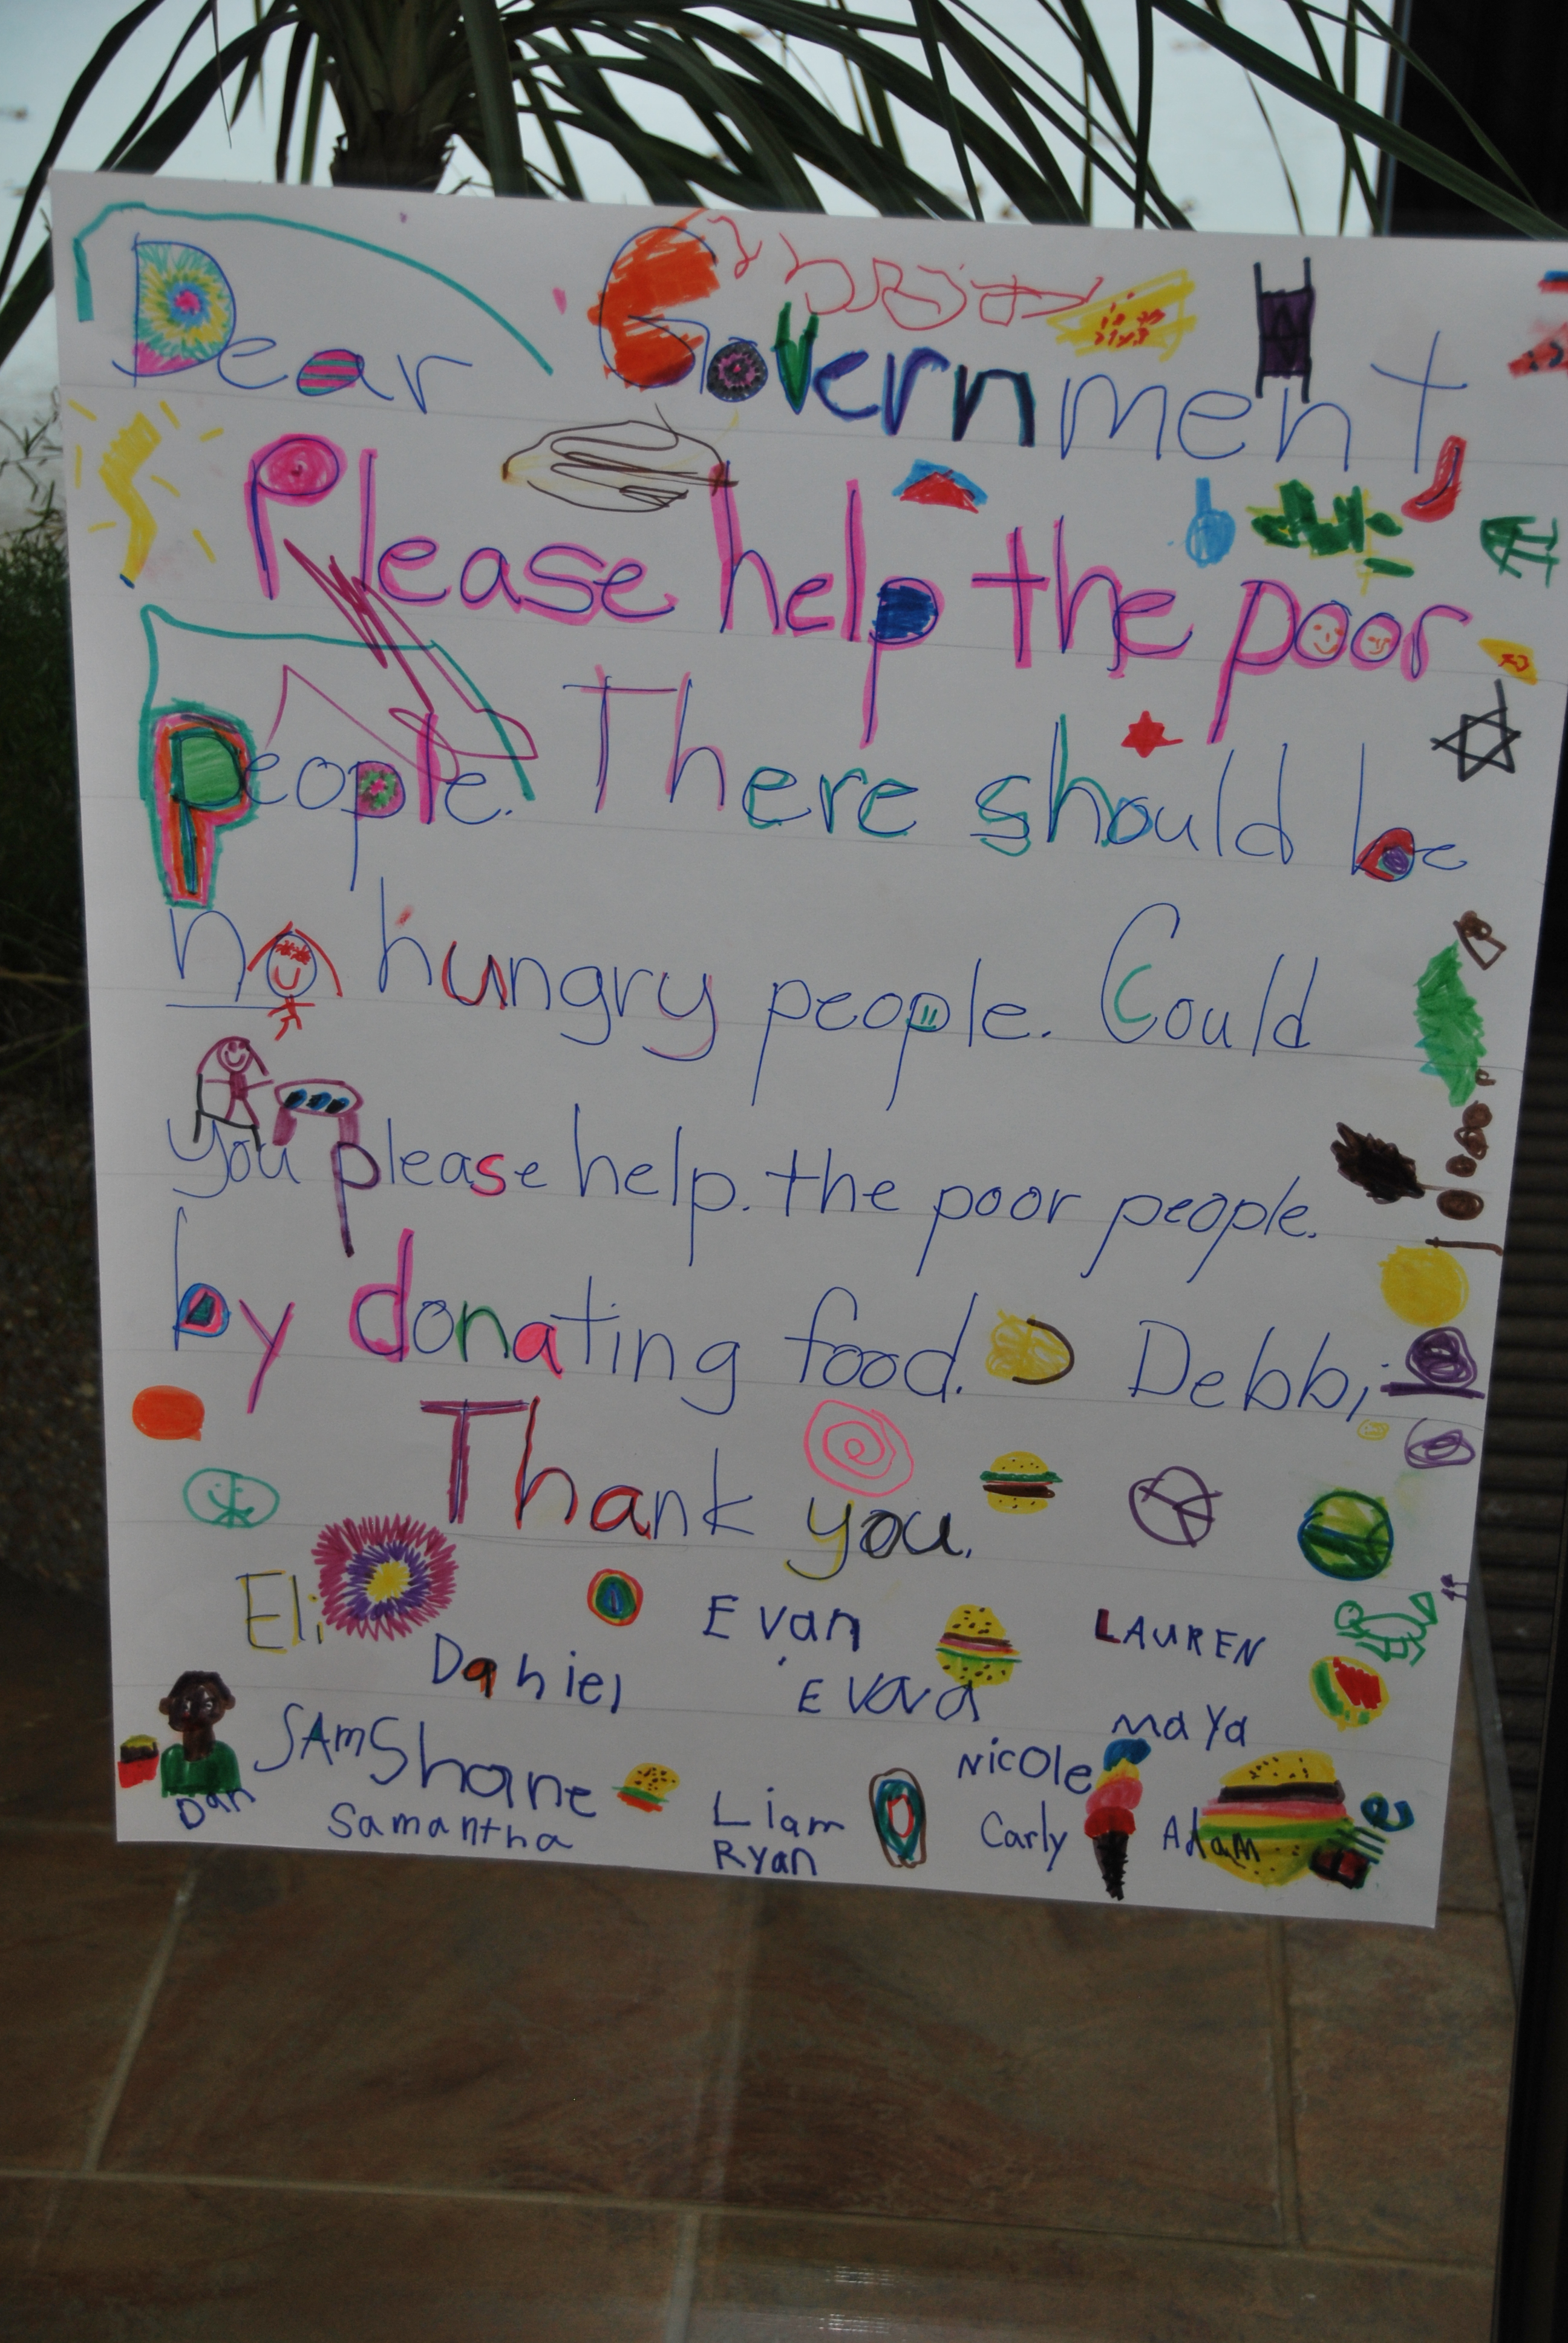 Dear Government
Please help the poor
people. There should be
no hungry people. Could
you please help. the poor people.
by donating food. Debbi
Thank you.
Eli Evan LAUREN
Daniel Evava
SAM Shane Nicole Maya
Dan Samantha Liam Carly Adam
Ryan